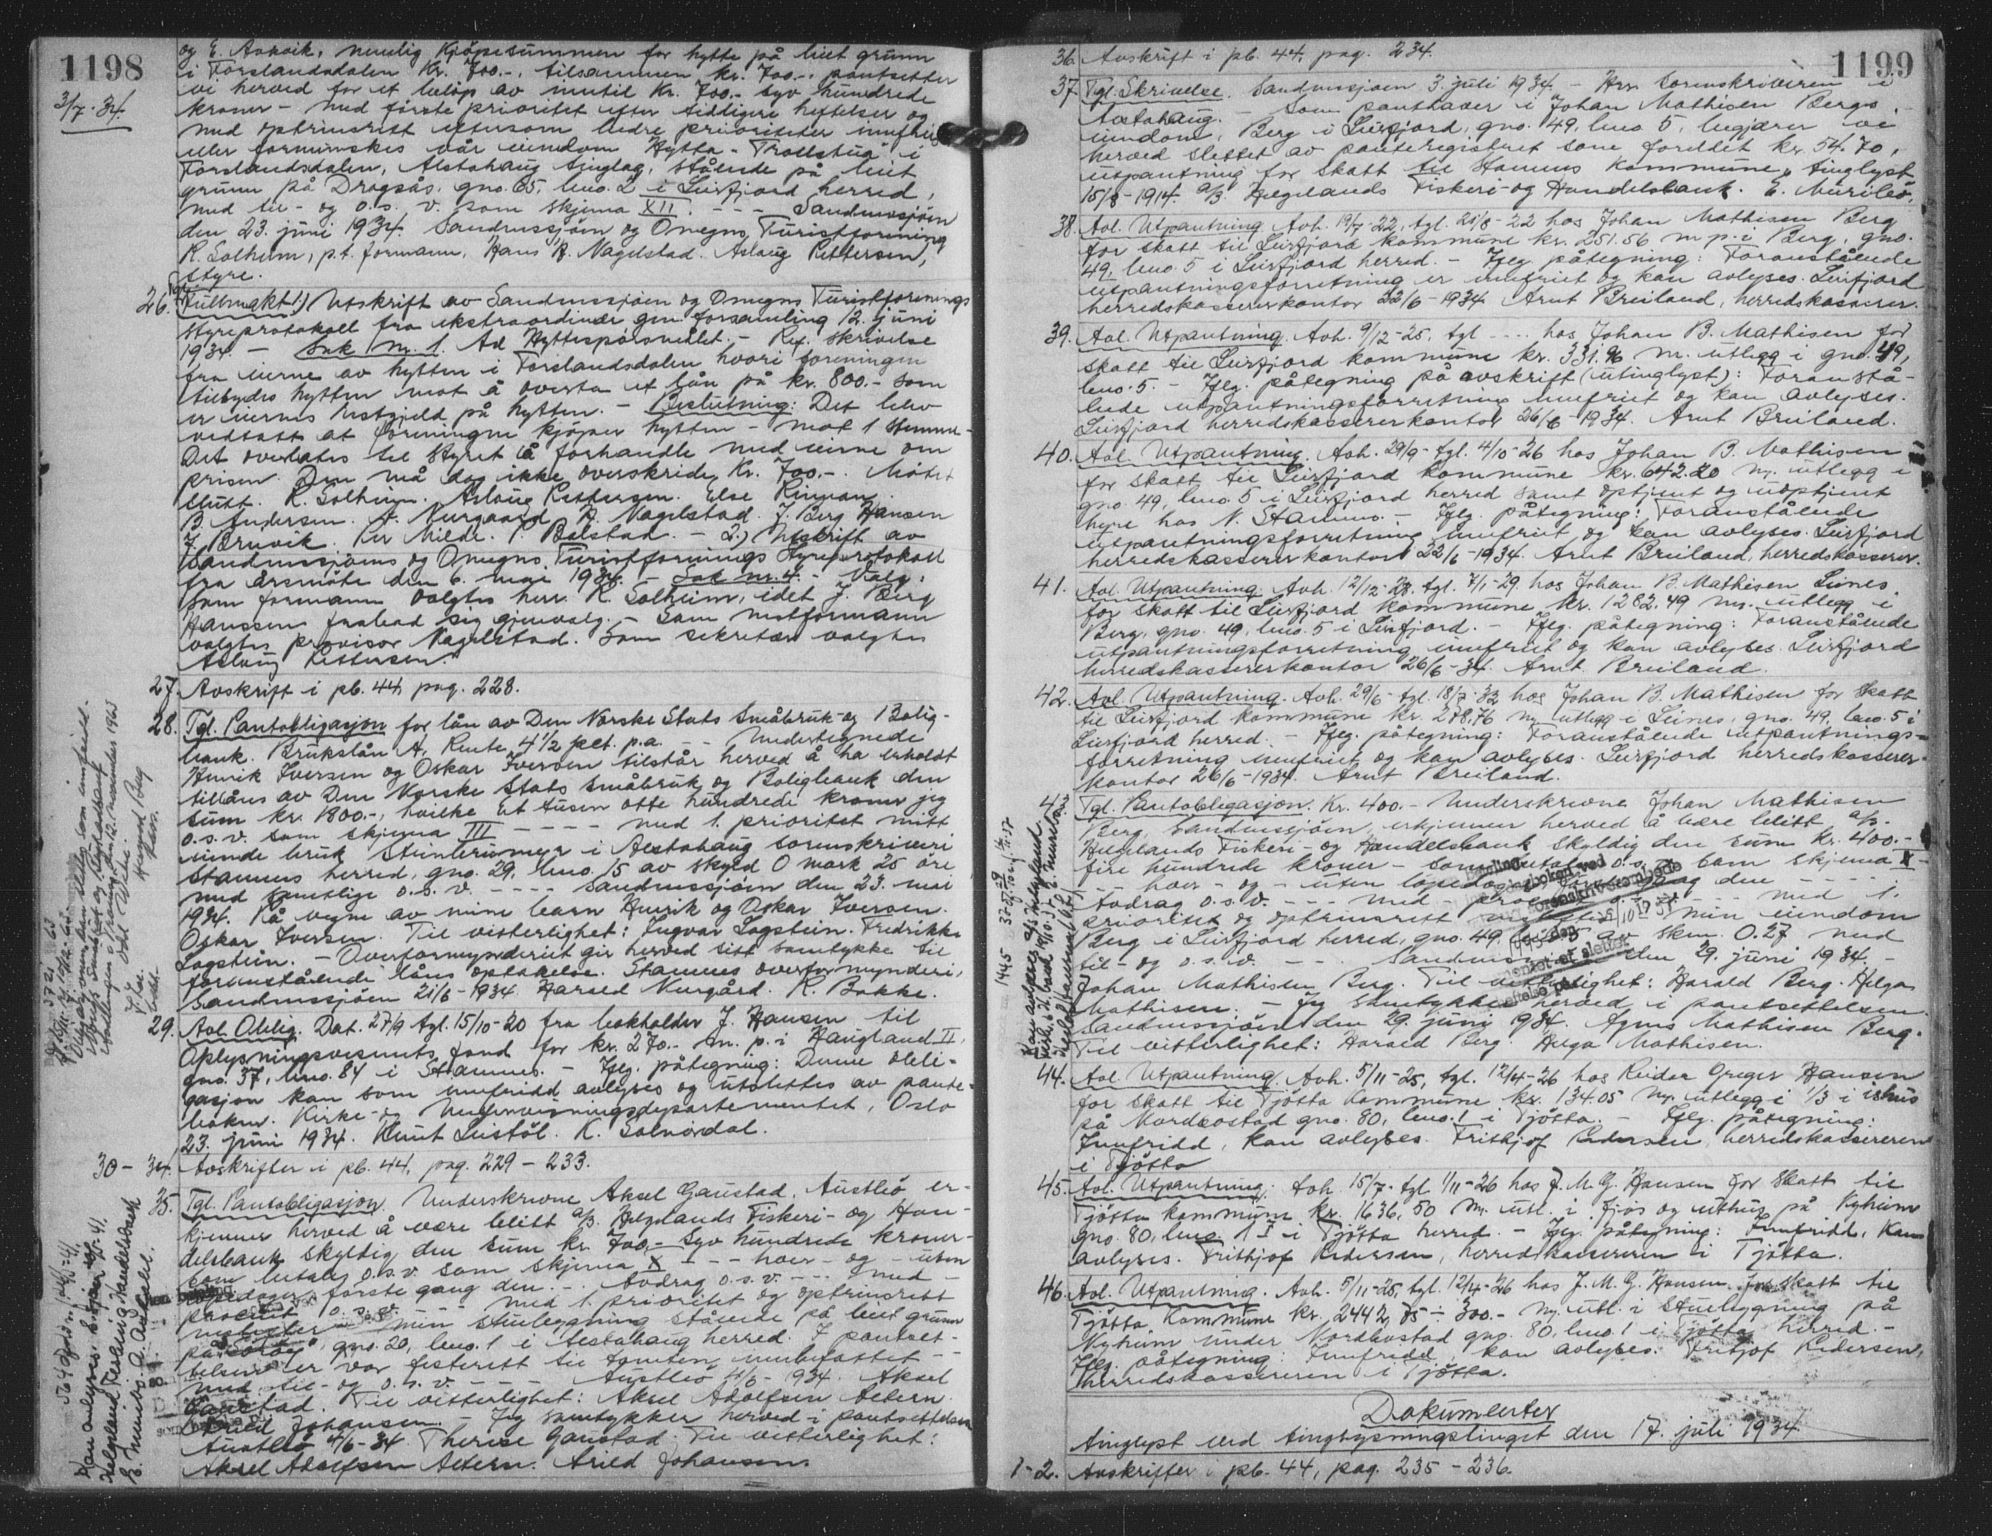 1198
3/7-34.
og E. Aakvik, nemlig kjøpesummen for hytte på leiet grunn
i Forslandsdalen kr. 700.-, tilsammen kr. 700.-, pantsetter
vi herved for et beløp av inntil kr. 700.- syv hundrede
kroner - med første prioritet efter tidligere heftelser og
med optrinsrett eftersom bedre prioriteter innfries
eller forminskes vår eiendom Hytta "Trollstua" i
Forslandsdalen, Alstahaug tinglag, stående på leiet
grunn på Dragsås, gno. 65, bno. 2 i Leirfjord herred,
med til- og o.s.v. som skjema XII. - - - Sandnessjøen
den 23. juni 1934. Sandnessjøen og Omegns Turistforening
K. Solheim, p.t. formann. Hans R. Nagelstad. Aslaug Pettersen,
styre.
26. Tgl. Fullmakt 1.) Utskrift av Sandnessjøen og Omegns Turistforenings
styreprotokoll fra ekstraordinær gen. forsamling 12. juni
1934 - Sak nr. 1. Ad Hyttespørsmålet. - Ref. skrivelse
fra eierne av hytten i Forslandsdalen hvori foreningen
tilbydes hytten mot å overta et lån på kr. 800.- som
er eiernes restgjeld på hytten. - Beslutning: Det blev
vedtatt at foreningen kjøper hytten - mot 1 stemme -
Det overlates til styret å forhandle med eierne om
prisen. Den må dog ikke overskride kr. 700.-. Møtet
slutt. K. Solheim. Aslaug Pettersen. Else Rinnan.
B. Andersen. J. Nergaard. H. Nagelstad. J. Berg Hansen
J. Brevik. Per Milde. P. Belstad. - 2.) Utskrift av
Sandnessjøens og Omegns Turistforenings Styreprotokoll
fra årsmøte den 6. mai 1934. - Sak nr. 4. - Valg:
Som formann valgtes herr K. Solheim, idet J. Berg
Hanssen frabad sig gjenvalg. - Som nestformann
valgtes provisor Nagelstad. Som sekretær valgtes
Aslaug Pettersen.
27. Avskrift i pb. 44, pag. 228.
28. Tgl. Pantobligasjon for lån av Den Norske Stats Småbruk- og Bolig-
bank. Brukslån A, Rente 4 1/2 pct. p.a. - Undertegnede
Henrik Iversen og Oskar Iversen tilstår herved å ha erholdt
tillåns av Den Norske Stats Småbruk og Boligbank den
sum kr. 1800.-, hvilke et tusen otte hundrede kroner jeg
o.s.v. som skjema III - - - - med 1. prioritet mitt
eiende bruk Steinbrumoer i Alstahaug sorenskriveri
Stamnes herred, gno. 29, bno. 15 av skyld 0 mark 25 øre
med samtlige o.s.v. - - - - Sandnessjøen den 23. mai
1934. På vegne av mine barn Henrik og Oskar Iversen.
Oskar Iversen. Til vitterlighet: Ingvar Løgstein. Fredrikke
Løgstein. - Overformynderiet gir herved sitt samtykke til
foranstående låns optakelse. Stamnes overformynderi,
Sandnessjøen 21/6-1934. Harsed Nergård. R. Bakke.
29. Avl. Oblig. Dat. 27/9 tgl. 15/10-20 fra bokholder J. Hansen til
Oplysningsvesenets fond for kr. 270.- m. p. i Haugland II,
gno. 37, bno. 84 i Stamnes. - Iflg. påtegning: Denne obli-
gasjon kan som innfridd avlyses og utslettes av pante-
boken. Kirke- og Undervisningsdepartementet, Oslo
23. juni 1934. Knut Leistøl. K. Solnørdal.
30-34. Avskrifter i pb. 44, pag. 229-233.
35. Tgl. Pantobligasjon. Underskrevne Aksel Garstad, Austbø er-
kjenner herved å være blitt a/s. Helgelands Fiskeri- og Han-
delsbank skyldig den sum kr. 700.- syv hundrede kroner -
som betales o.s.v. som skjema X - - hver- og - uten
løpedager første gang den. - Avdrag o.s.v. - - - med -
procent o.s.v. - - med 1. prioritet og optrinsrett
min stuebygning stående på leiet grunn
gno. 20, bno. 1 i Alstahaug herred. I pantset-
telsen er vår festerett til tomten innbefattet - -
med til- og o.s.v. - - - Austbø 4/6-1934. Aksel
Garstad. Til vitterlighet: Aksel Adolfsen Altern.
Arild Johansen. - Jeg samtykker herved i pantsettelsen
Austbø 4/6-34. Therese Garstad. Til vitterlighet:
Aksel Adolfsen Altern. Arild Johansen
1199
36. Avskrift i pb. 44, pag. 234.
37. Tgl. Skrivelse. Sandnessjøen 3. juli 1934. - Herr Sorenskriveren i
Alstahaug. - Som panthaver i Johan Mathisen Bergs
eiendom, Berg i Leirfjord, gno. 49, bno. 5, begjærer vi
herved slettet av panteregistret som foreldet kr. 54.70,
utpantning for skatt til Stamnes kommune, tinglyst
15/8-1914. A/S Helgelands Fiskeri- og Handelsbank. E.
38. Avl. Utpantning Avh. 19/7-22, tgl. 21/8-22 hos Johan Mathisen Berg
for skatt til Leirfjord kommune kr. 251.56 m. p. i Berg, gno.
49, bno. 5 i Leirfjord herred. - Iflg. påtegning: Foranstående
utpantningsforretning er innfriet og kan avlyses. Leirfjord
herredskassererkontor 22/6-1934. Arnt Breiland, herredskasserer.
39. Avl. Utpantning. Avh. 9/12-25, tgl. - - - hos Johan B. Mathisen for
skatt til Leirfjord kommune kr. 331.96 m. utlegg i gno. 49,
bno. 5. - Iflg. påtegning på avskrift (utinglyst): Foranstå-
ende utpantningsforretning innfriet og kan avlyses.
Leirfjord herredskassererkontor 26/6-1934. Arnt Breiland.
40. Avl. Utpantning. Avh. 29/9-tgl. 4/10-26 hos Johan B. Mathisen
for skatt til Leirfjord kommune kr. 642.20 m. utlegg i
gno. 49, bno. 5 i Leirfjord herred samt optjent og uoptjent
hyre hos N. Stamnes. - Iflg. påtegning: Foranstående
utpantningsforretning innfriet og kan avlyses. Leirfjord
herredskassererkontor 22/6-1934. Arnt Breiland, herredskasserer.
41. Avl. Utpantning Avh. 12/12-28, tgl. 7/1-29. hos Johan B. Mathisen Leines
for skatt til Leirfjord kommune kr. 1282.49 m. utlegg i
Berg, gno. 49, bno. 5 i Leirfjord. - Iflg. påtegning: Foranstående
utpantningsforretning innfriet og kan avlyses. Leirfjord
herredskassererkontor 26/6-34. Arnt Breiland.
42. Avl. Utpantning. Avh. 29/6-tgl. 18/7-32 hos Johan B. Mathisen for skatt
til Leirfjord kommune kr. 278.76 m. utlegg i Leines, gno. 49, bno. 5 i
Leirfjord herred. - Iflg. påtegning: Foranstående utpantnings-
forretning innfriet og kan avlyses. Leirfjord herredskasserer-
kontor 26/6-1934. Arnt Breiland.
43. Tgl. Pantobligasjon. Kr. 400.- Underskrevne Johan Mathisen
Berg, Sandnessjøen, erkjenner herved å være blitt a/s.
Helgelands Fiskeri- og Handelsbank skyldig den sum kr. 400.-
fire hundrede kroner - som betales o.s.v. som skjema X -
- - hver - og - uten løpedager, første gang den - - -
Avdrag o.s.v. - - - med - procent - - - med 1.
prioritet og optrinsrett min eiendom
Berg i Leirfjord herred, gno. 49, bno. 5 av skm. 0.27 med
til- og o.s.v. - - - Sandnessjøen den 29. juni 1934. -
Johan Mathisen Berg. Til vitterlighet: Harald Berg. Helga
Mathisen. - Jeg samtykker herved i pantsettelsen.
Sandnessjøen den 29. juni 1934. Agnes Mathisen Berg.
Til vitterlighet: Harald Berg. Helga Mathisen.
44. Avl. Utpantning. Avh. 5/11-25, tgl. 12/4-26 hos Reidar Greger Hansen
for skatt til Tjøtta kommune kr. 134.05 m. utlegg i 1/3 i ishus
på Nordbostad gno. 80, bno. 1 i Tjøtta. - Iflg. påtegning:
Innfridd, kan avlyses. Frithjof Pedersen, herredskassereren
i Tjøtta
45. Avl. Utpantning. Avh. 15/7-tgl. 1/11-26 hos J. M. G. Hansen for skatt til
Tjøtta kommune kr. 1636.50 m. utl. i fjøs og uthus på Nyheim
gno. 80, bno. 1 i Tjøtta herred. - Iflg. påtegning: Innfridd, kan
avlyses. Frithjof Pedersen, herredskassereren i Tjøtta.
46. Avl. Utpantning. Avh. 5/11-25, tgl. 12/4-26 hos J. M. G. Hansen for skatt til
Tjøtta kommune kr. 2442,85 ÷ 300.- m. utl. i stuebygning på
Nyheim under Nordbostad gno. 80, bno. 1 i Tjøtta herred. -
Iflg. påtegning: Innfridd, kan avlyses. Fritjof Pedersen,
Herredskassereren i Tjøtta.
Dokumenter
tinglyst ved tinglysningstinget den 17. juli 1934.
1-2. Avskrifter i pb. 44, pag. 235-236.